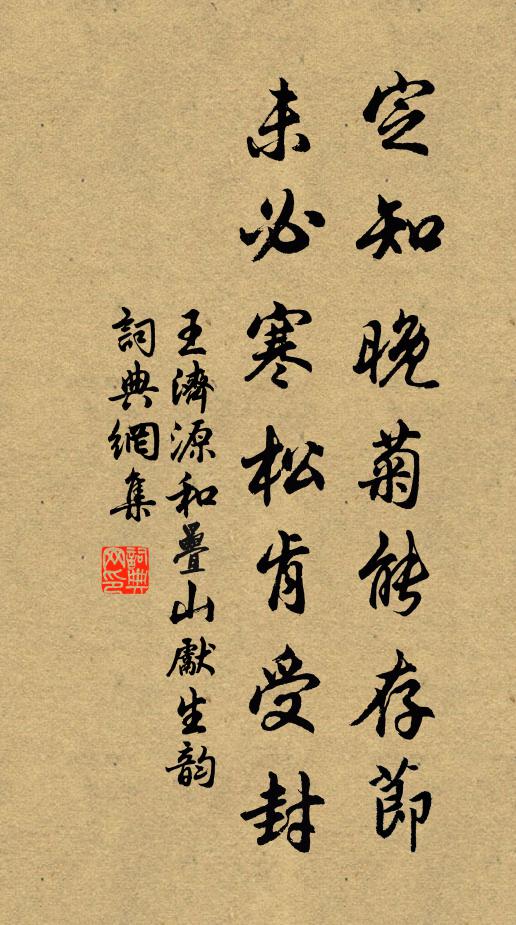 定知晚菊能存節
未必寒松肯受封
王濟源和疊山獻生韵
詞典網集
詞典網印